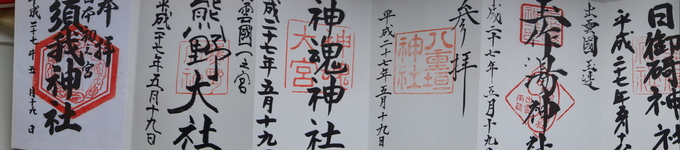 日御碕神社
平成二十七年五月
出雲國玉造
玉作湯神社
平成二十七年五月十九
参拝
八重垣神社
平成二十七年五月十九日
神魂神社
神魂大宮
平成二十七年五月十九
出雲國一之宮
熊野大社
平成二十七年五月十九日
奉拝
日本初之宮
須我神社
平成二十七年五月十九日